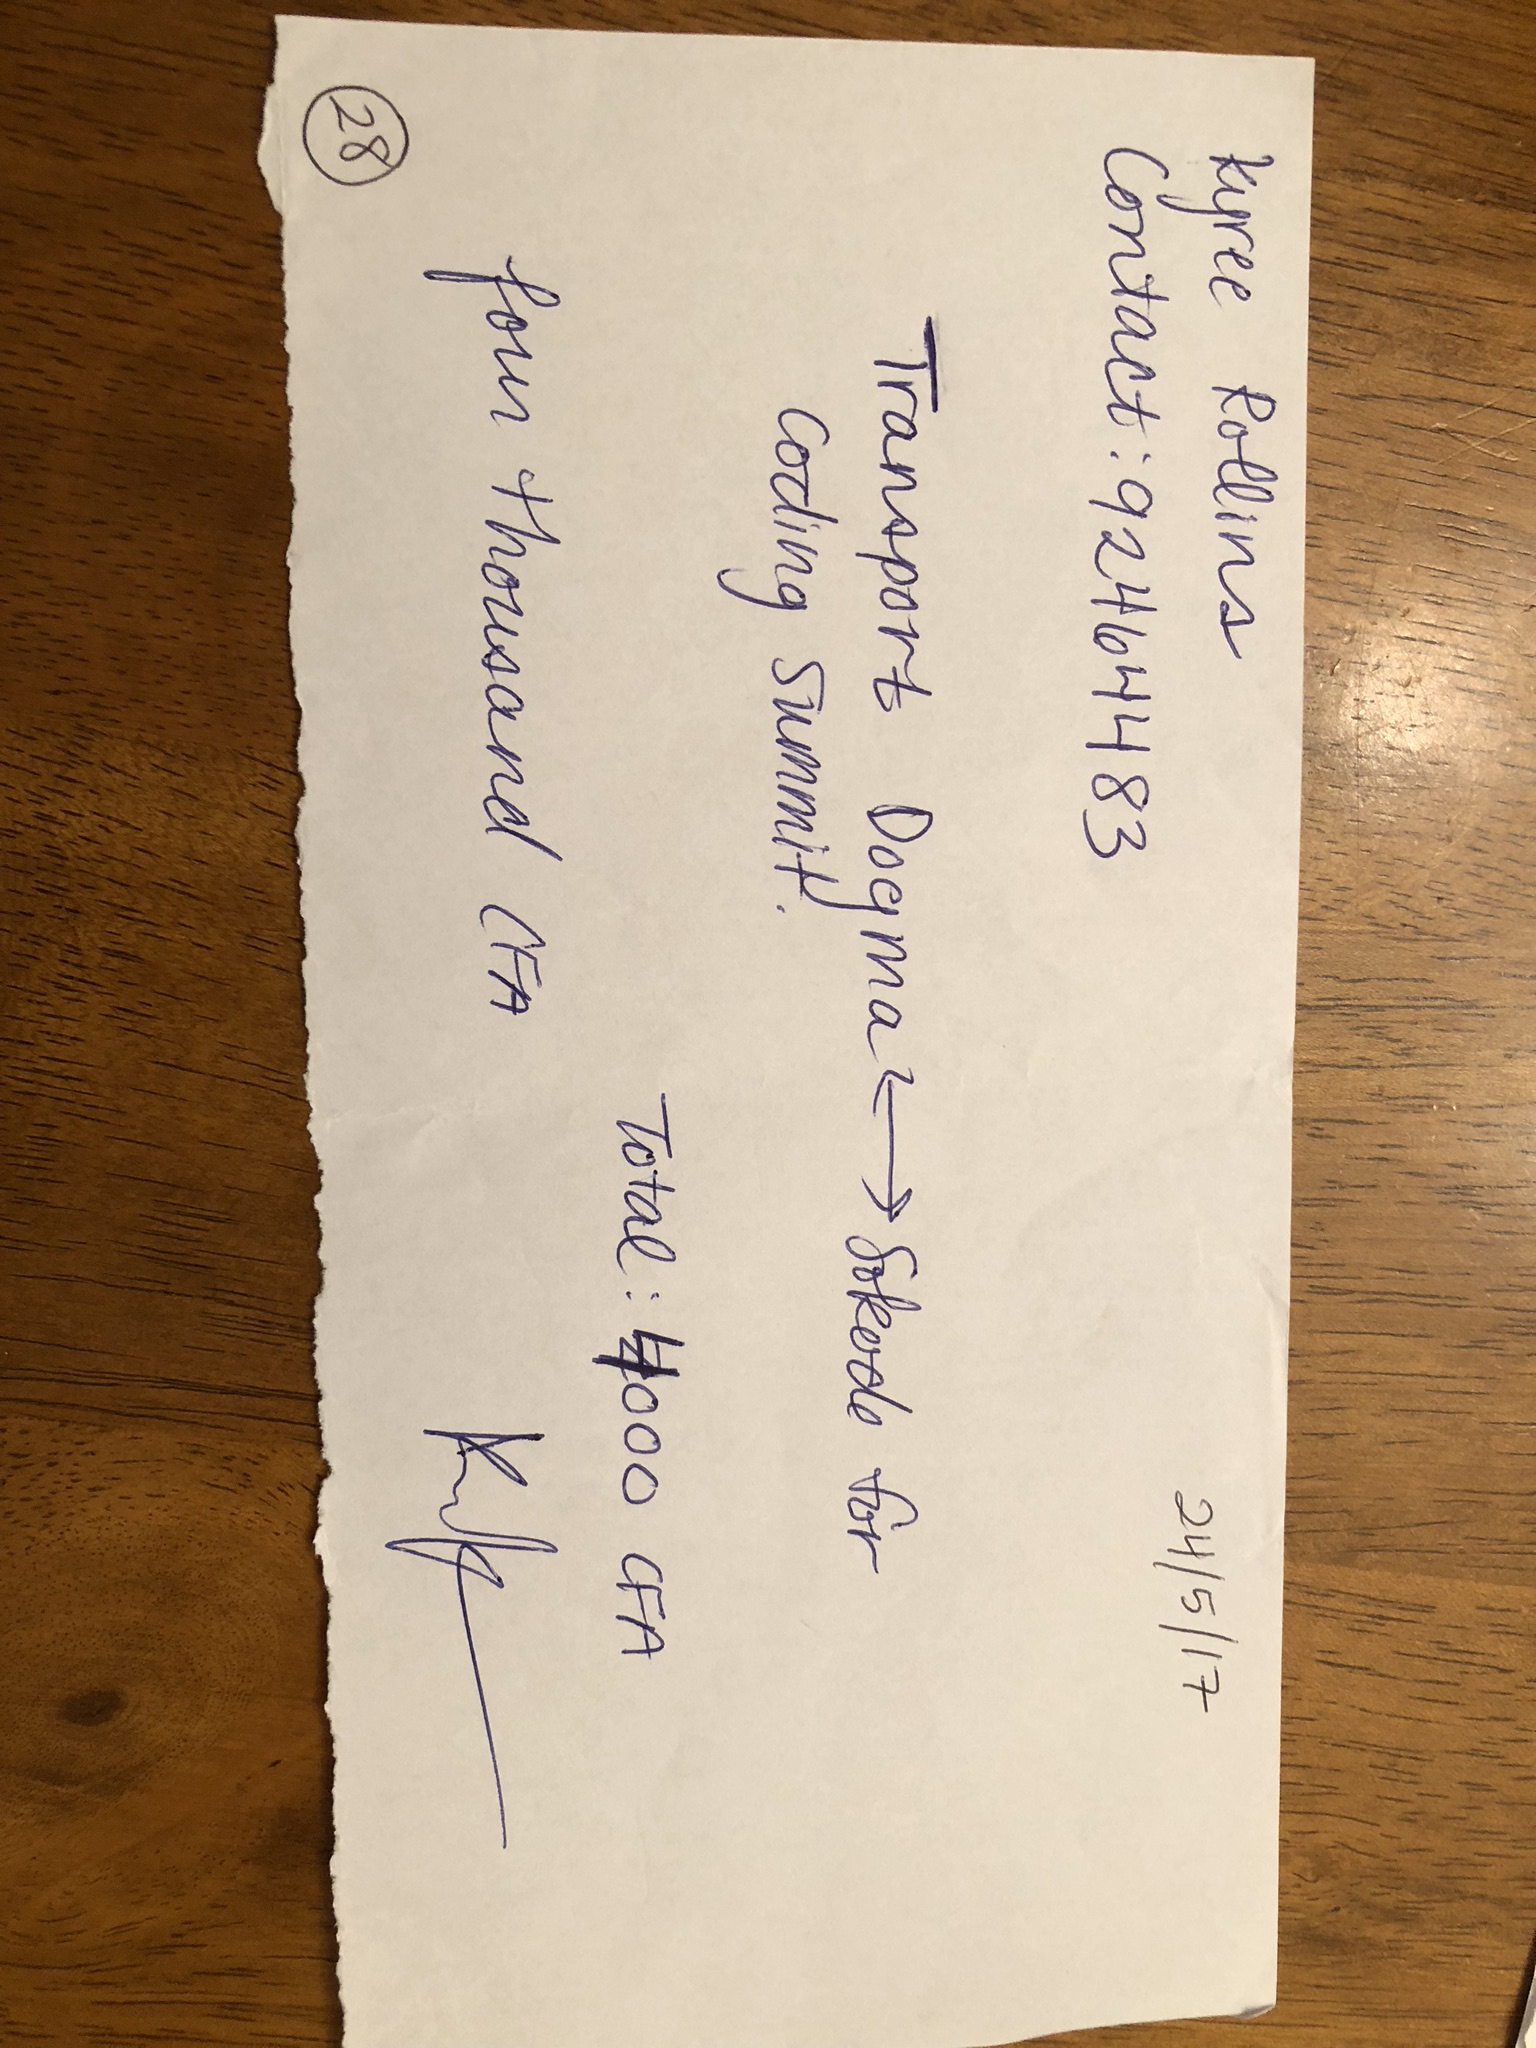 24/5/17
Kyree Rollins
Contact: 92464483
Transport Dogma ←→ Sokode for
Coding Summit.
Total: 4000 CFA
four thousand CFA
28